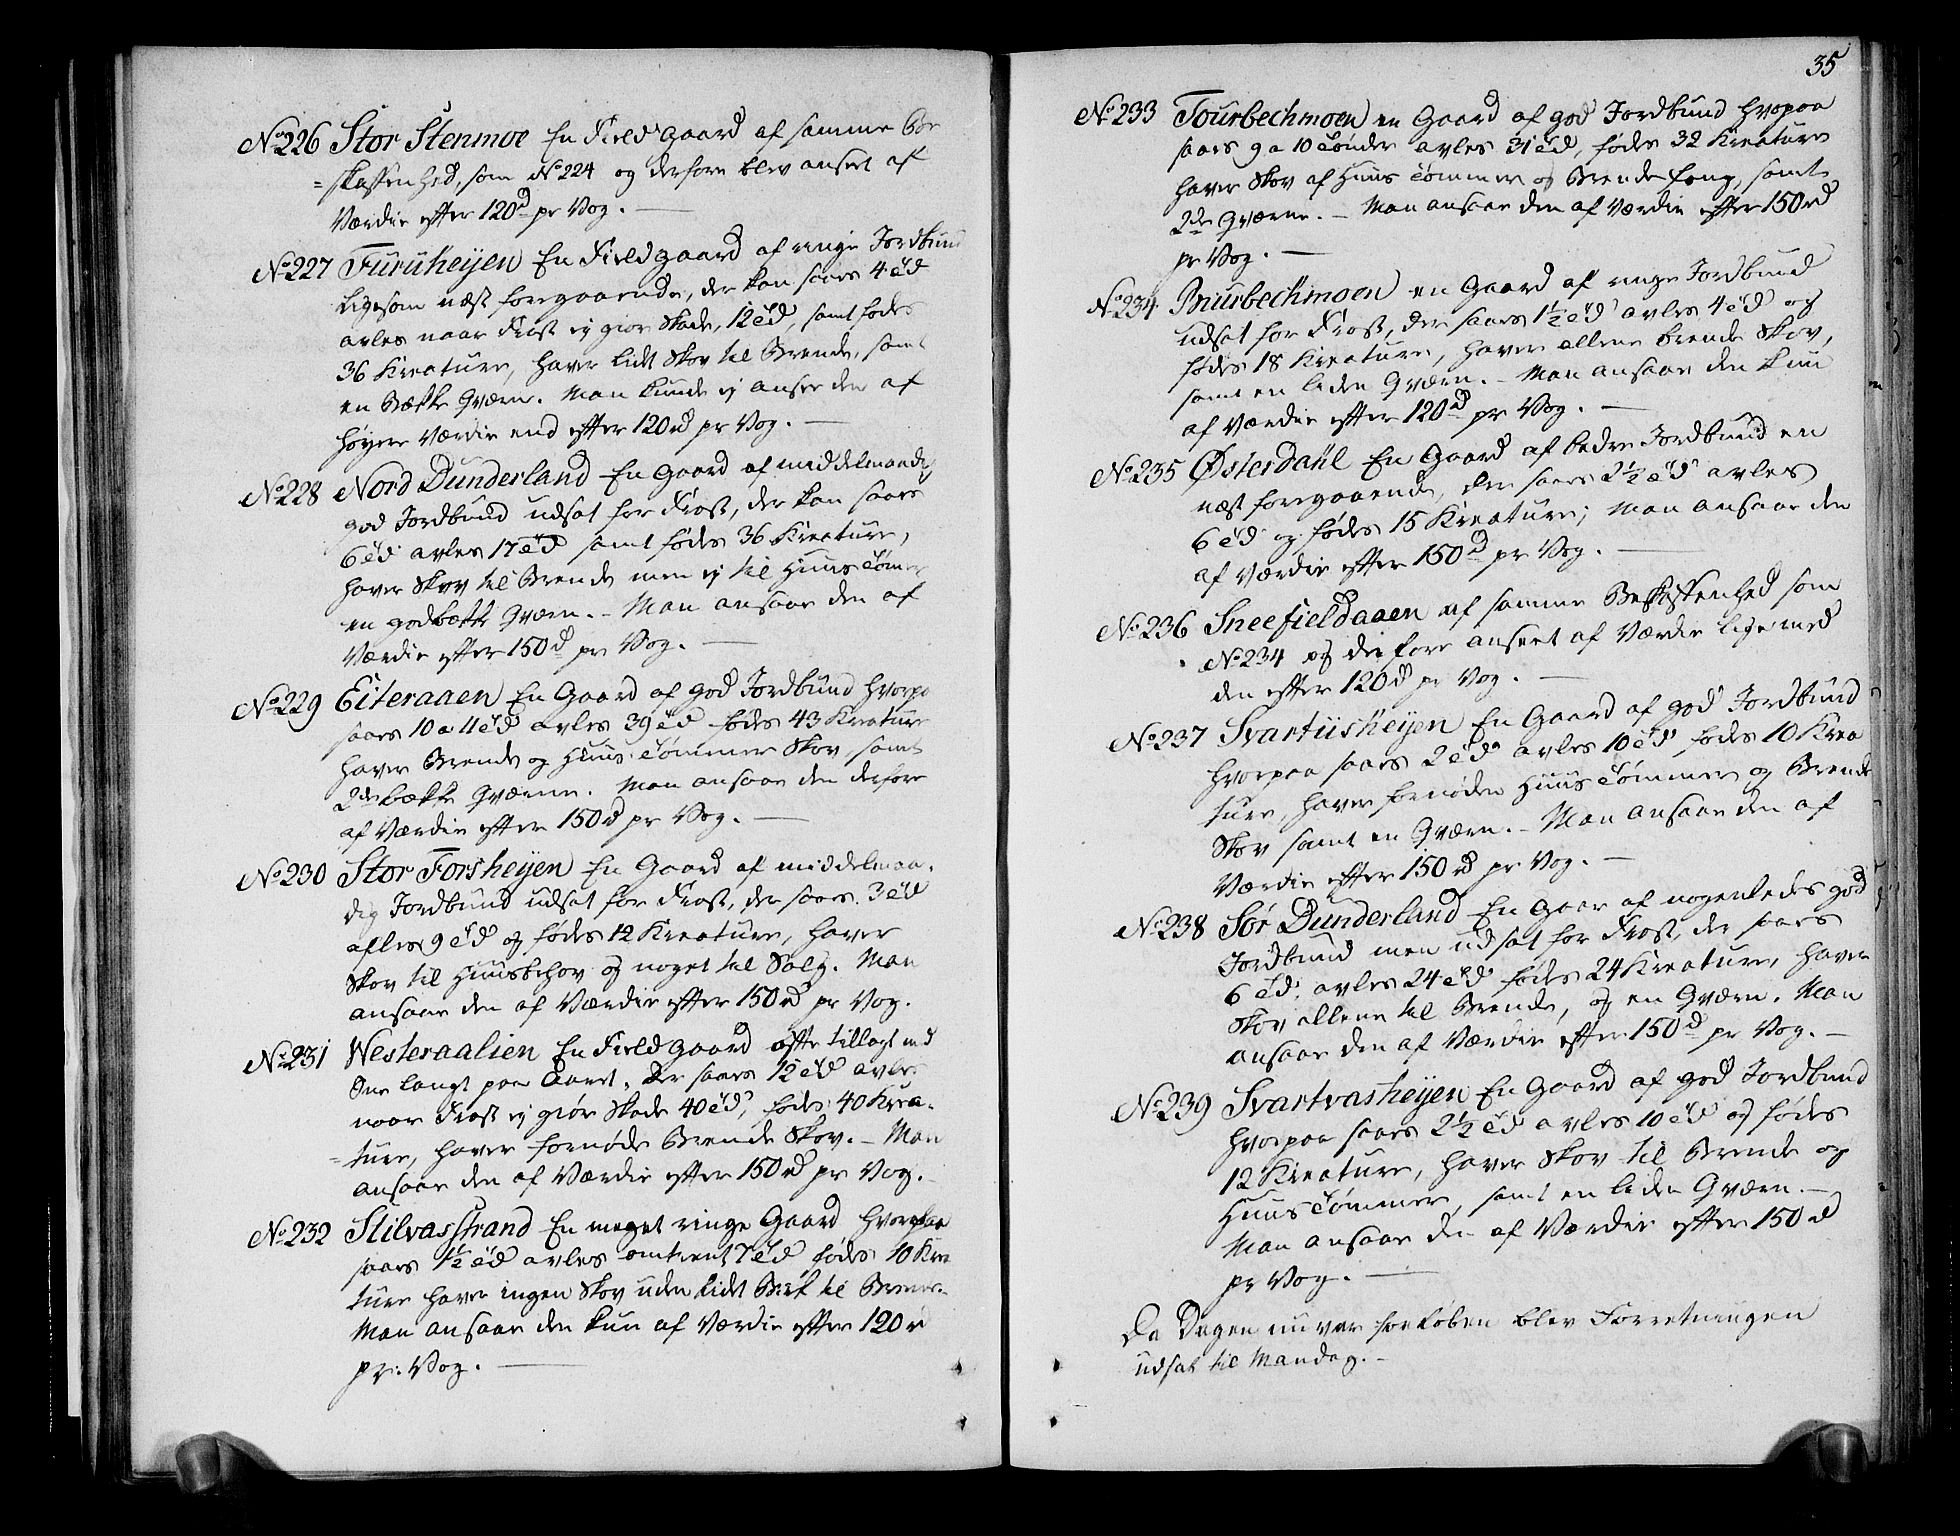 No 226 Stor Stenmoe En Field Gaard af samme Be
=skaffenhed, som No 224 og derfore blev anseet af
Værdie efter 120 rd pr Vog. —
No 227 Furuheijen En Field gaard af ringe Jordbund
ligesom næst foregaaende, der kan saaes 4 Td
avles naar Frost ej giør Skade, 12 Td, samt fødes
36 Kreature, haver lidt Skov til Brende, samt
en Bække Qværn. Man kunde ej ansee den af
høyere Værdie end efter 120 rd pr Vog. —
No 228 Nord Dunderland En Gaard af middelmaadig
god Jordbund udsat for Frost, der kan saaes
6 Td avles 17 Td samt fødes 36 Kreature,
haver Skov til Brende men ej til Huus Tømer
en god bække Qværn. – Man ansaae den af
Værdie efter 150 d pr Vog. —
No 229 Eiteraaen En Gaard af god Jordbund hvorpa
saaes 10 a 11 Td avles 39 Td fødes 43 Kreature
haver Brende og Huus Tømmer Skov, samt
2de bække Qværne. Man ansaae den derfore
af Værdie efter 150 rd pr Vog. —
No 230 Stor Forsheijen En Gaard af middelmaa-
dig Jordbund udsat for Frost, der saaes 3 Td
afles 9 Td og fødes 12 Kreature, haver
Skov til Huusbehov og noget til Salg. Man
ansaae den af Værdie efter 150 rd pr Vog.
No 231 Westeraalien En Field gaard ofte tillagt med
Snee langt paa Aaret. Der saaes 12 Td avles
naar Frost ej giør Skade 40 Td, fødes 40 Krea-
=ture, haver fornøde Brende Skov. – Man
ansaae den af Værdie efter 150 rd pr Vog. –
No 232 Stilvasstrand En meget ringe Gaard hvorpaa
saaes 1½ Td avles omtrent 7 Td fødes 10 Krea
ture haver ingen Skov uden lidt Birk til Brende.
Man ansaae den kun af Værdie efter 120 rd
pr: Vog. —
35
No 233 Tourbechmoen en Gaard af god Jordbund hvopaa
saaes 9 a 10 Tønder avles 31 Td, fødes 32 Kreature
haver Skov af Huus Tømmer og Brende fang, samt
2de Qværne. – Man ansaae den af Værdie efter 150 rd
pr Vog. —
No 234 Bruurbechmoen en Gaard af ringe Jordbund
udsat for Frost, der saaes 1½ Td avles 4 Td og
fødes 18 Kreature, haver allene brende Skov,
samt en liden Qværn. – Man ansaae den kun
af Værdie efter 120 d pr Vog. —
No 235 Østerdahl En Gaard af bedre Jordbund en
næst foregaaende, der saaes 2½ Td avles
6 Td og fødes 15 Kreature; Man ansaae den
af Værdie efter 150 d pr Vog. —
No 236 Sneefieldaaen af samme Beskaffenhed som
No 234 og derfore anseet af Værdie lige med
den efter 120 d pr Vog. —
No 237 Svartiisheijen En Gaard af god Jordbund
hvorpaa saaes 2 Td avles 10 Td fødes 10 Krea
ture, haver fornøden Huus Tømmer og Brende
Skov samt en Qværn. – Man ansaae den af
Værdie efter 150 rd pr Vog. —
No 238 Sør Dunderland En Gaar af nogenledes god
Jordbund men udsat for Frost, der saaes
6 Td. avles 24 Td fødes 24 Kreature, haver
Skov allene til Brende, og en Qværn. Man
ansaae den af Værdie efter 150 d pr Vog. –
No 239 Svartvasheijen En Gaard af god Jordbund
hvorpaa saaes 2½ Td avles 10 Td og fødes
12 Kreature, haver Skov til Brende og
Huus Tømmer, samt en liden Qværn. –
Man ansaae den af Værdie efter 150 d
pr Vog. —
Da Dagen nu var forløben blev Forretningen
udsat til Mandag. –